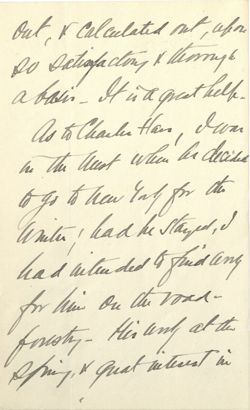 out, & calculated out, upon
so satisfactory & thorough
a basis - It is a great help -
As to Charlie Hass, I was
in the West when he decided
to go to New York for the
Winter; had he stayed, I
had intended to find work
for him on the road -
forestry - His work at the
Spring, & great interest in